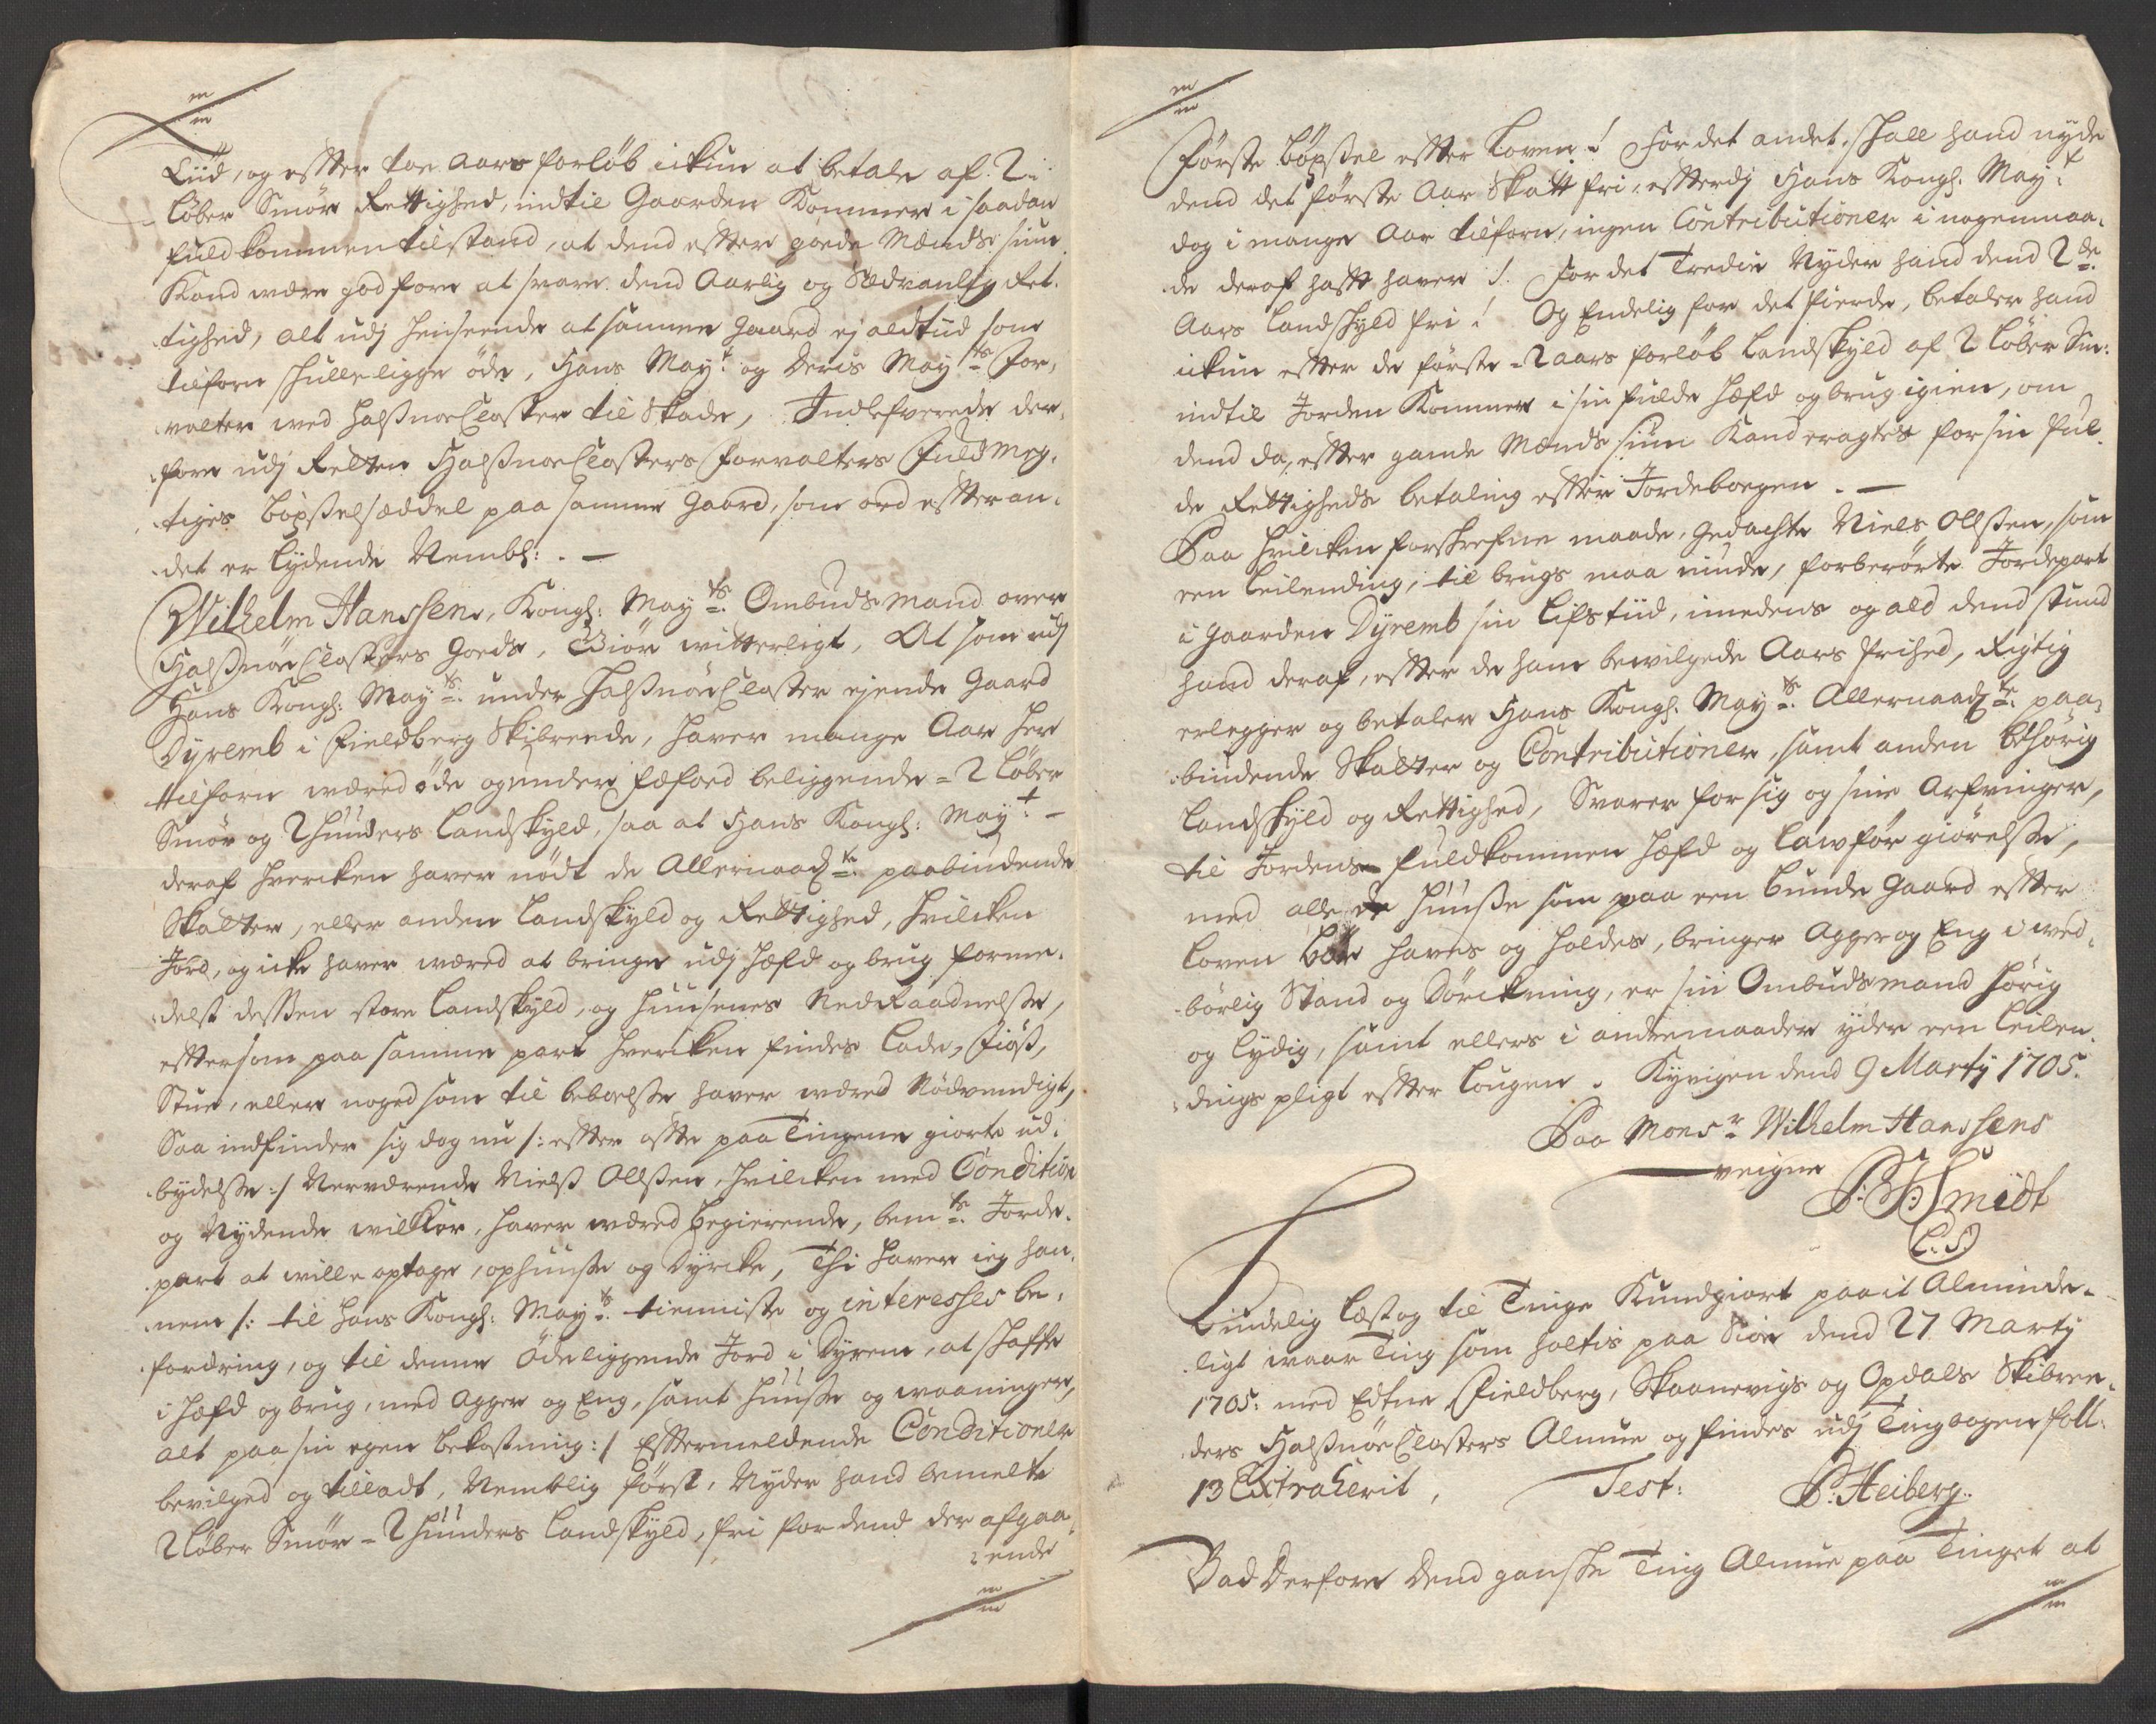 Liid, og effter toe aars forløb ickun at betale af 2
Løber Smør Rettighed, indtil Gaarden Kommer i saadan
fuldkommen tilstand, at dend effter goede Mænds siun
Kand være god fore at svare dend Aarlig og Sædvanlig Ret-
tighed, alt udj henseende at samme Gaard ej aldtiid som
tilforn schulle ligge øde, Hans Mayt og Deris Mayts For-
valter ved Halsnøe Closter til Skade, Indlefverede der-
fore udj Retten Halsnøe Closters Forvalters Fuldmeg-
tiges bøxselsæddel paa samme Gaard, som ord effter an-
det er lydende Nembl:
Wilhelm Hanssen, Kongl: Mayts Ombudsmand over
Halsnøe Closters Goeds, Giør witterligt, At som udj
Hans Kongl: Mayts under Halsnøe Closter ejende Gaard
Dyremb i Fieldberg Skibrede, haver mange Aar her
tilforn wæred øde og under fæfoed beliggende = 2 Løber
Smør og 2 huuders Landskyld, saa at Hans Kongl: Mayt
deraf hvercken haver nødt de Allernaadste paabindende
Skatter, eller anden Landskyld og Rettighed, hvilcken
Jord, og icke haver wæred at bringe udj hæfd og brug forme-
delst dessen store Landskyld, og huusenes NedRaadnelsse,
efftersom paa samme part hvercken findes Lade, Fiøss,
Stue, eller noged som til beboelsse haver wæred Nødvendigt,
Saa indfinder sig dog nu /: effter offte paa Tingene giorte ud-
bydelsse :/ Nerværende Nielss Ollssen, hvilcken med Condition
og Nydende wilkor, haver wæred begierende, bemte Jorde-
part at wille optage, ophuusse og Dyrcke, Thi haver ieg han-
nem /: til Hans Kongl: Mayts tienniste og interesses be-
fordring, og til denne Øde liggende Jord i Dyrem, at schaffe
i hæfd og brug, med Agger og Eng, samt huusse og waaninger,
alt paa sin egen bekostning :/ Effterneldende Conditioner
bevilged og tilladt, Nemblig først, Nyder hand bemelte
2 Løber Smør = 2 huuders Landskyld, fri for dend der afgaa-
ende
Første bøxsel effter Loven ! For det andet, schall hand nyde
dend det første Aar Skatt fri, effterdj Hans Kongl: Mayt
dog i mange Aar tilforn, ingen Contributioner i nogenmaa-
de deraf hafft haver /. For det Tredie Nyder hand dend 2de
Aars Landschyld fri ! Og Endelig for det fierde, betaler hand
ickun effter de første 2 aars forløb Landskyld af 2 Løber Sm:
indtil Jorden Kommer i sin fulde hæfd og brug igien, om
dend da, effter gamle Mænds siun Kand eragtes for sin ful-
de Rettigheds betaling effter Jordebogen.
Paa hvilcken forskrefne maade, gedachte Niels Ollssen, som
een Leilending, til brugs maa niude, forberørte Jordepart
i Gaarden Dyremb sin Lifstiid, imedens og ald dend stund
hand deraf, effter de ham bewilgede Aars frihed, Rigtig
erlegger og betaler Hans Kongl: Mayts Allernaadste paa-
bindende Skatter og Contributioner, samt anden behørig
Landskyld og Rettighed, Svarer for sig og sine Arfvinger,
til Jordens fuldkommen hæfd og Lawfør giørelsse,
med alle de huusse som paa een bunde Gaard effter
Loven bør haves og holdes, bringer Agger og Eng i wed-
børlig Stand og Dørckning, er sin Ombudsmand hørig
og Lydig, samt ellers i andremaader yder een Leilen-
dings pligt effter Lougen. Kyvigen dend 9 Marty 1705.
Paa Monsr Wilhelm Hanssens
weigne
P: Smidt
L.S.
Liudelig Læst og til Tinge Kundgiort paa it Alminde-
ligt waar Ting som holtis paa Siøe dend 27 Marty
1705. med Edtne, Fieldberg, Skaanevigs og Opdals Skibree-
ders Halsnøe Closters Almue og findes udj Tingbogen foll:
13 Extraherit, Test: P: Heiberg.
Bad Derfore Dend gansche Ting Almue paa Tinget at